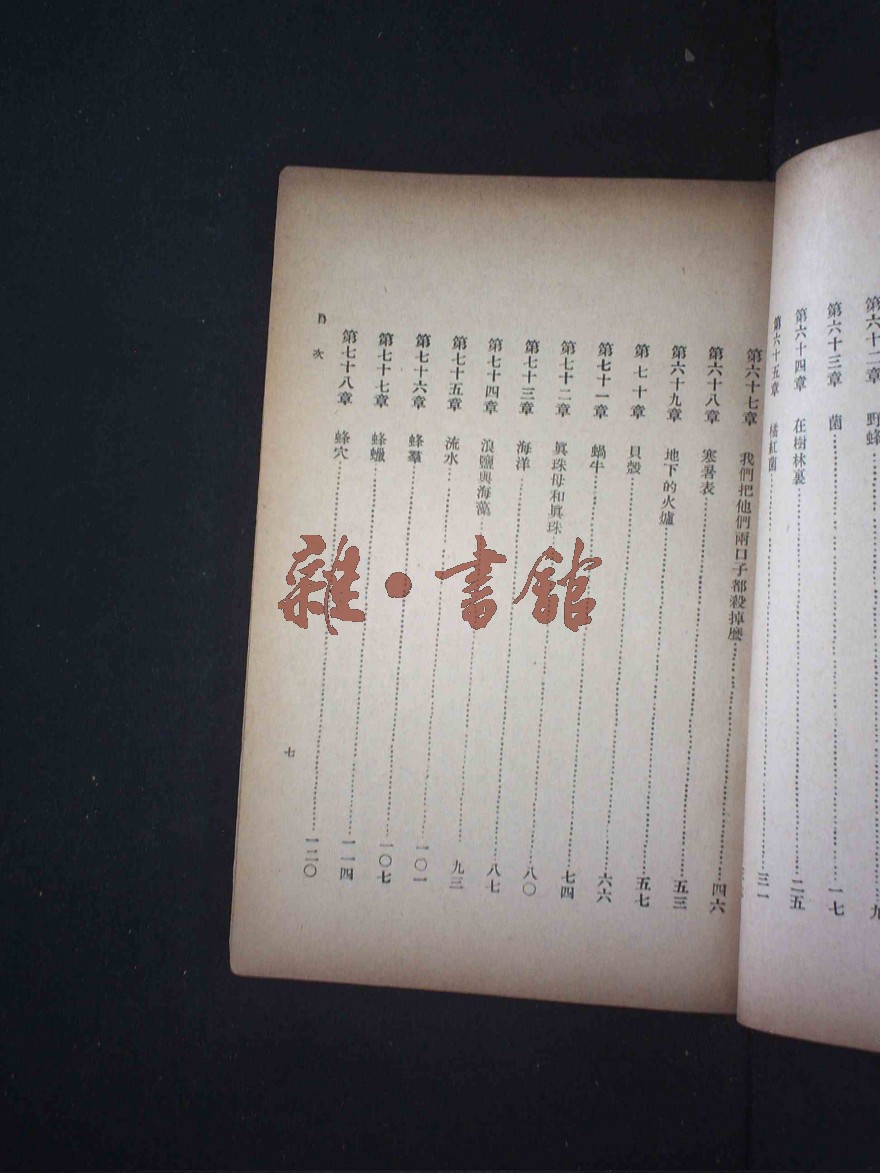 第六十二章　野蜂……九
第六十三章　菌……一七
第六十四章　在樹林裏……二五
第六十五章　橘紅菌……三一
第六十七章　我們把他們兩口子都殺掉麽……四六
第六十八章　寒暑表……五三
第六十九章　地下的火爐……五七
第七十章　貝殼……六六
第七十一章　蝸牛……七四
第七十二章　眞珠母和眞珠……八〇
第七十三章　海洋……八七
第七十四章　浪鹽與海藻……九三
第七十五章　流水……一〇一
第七十六章　蜂羣……一〇七
第七十七章　蜂蠟……一一四
第七十八章　蜂穴……一二〇
目次
七
雜·書館